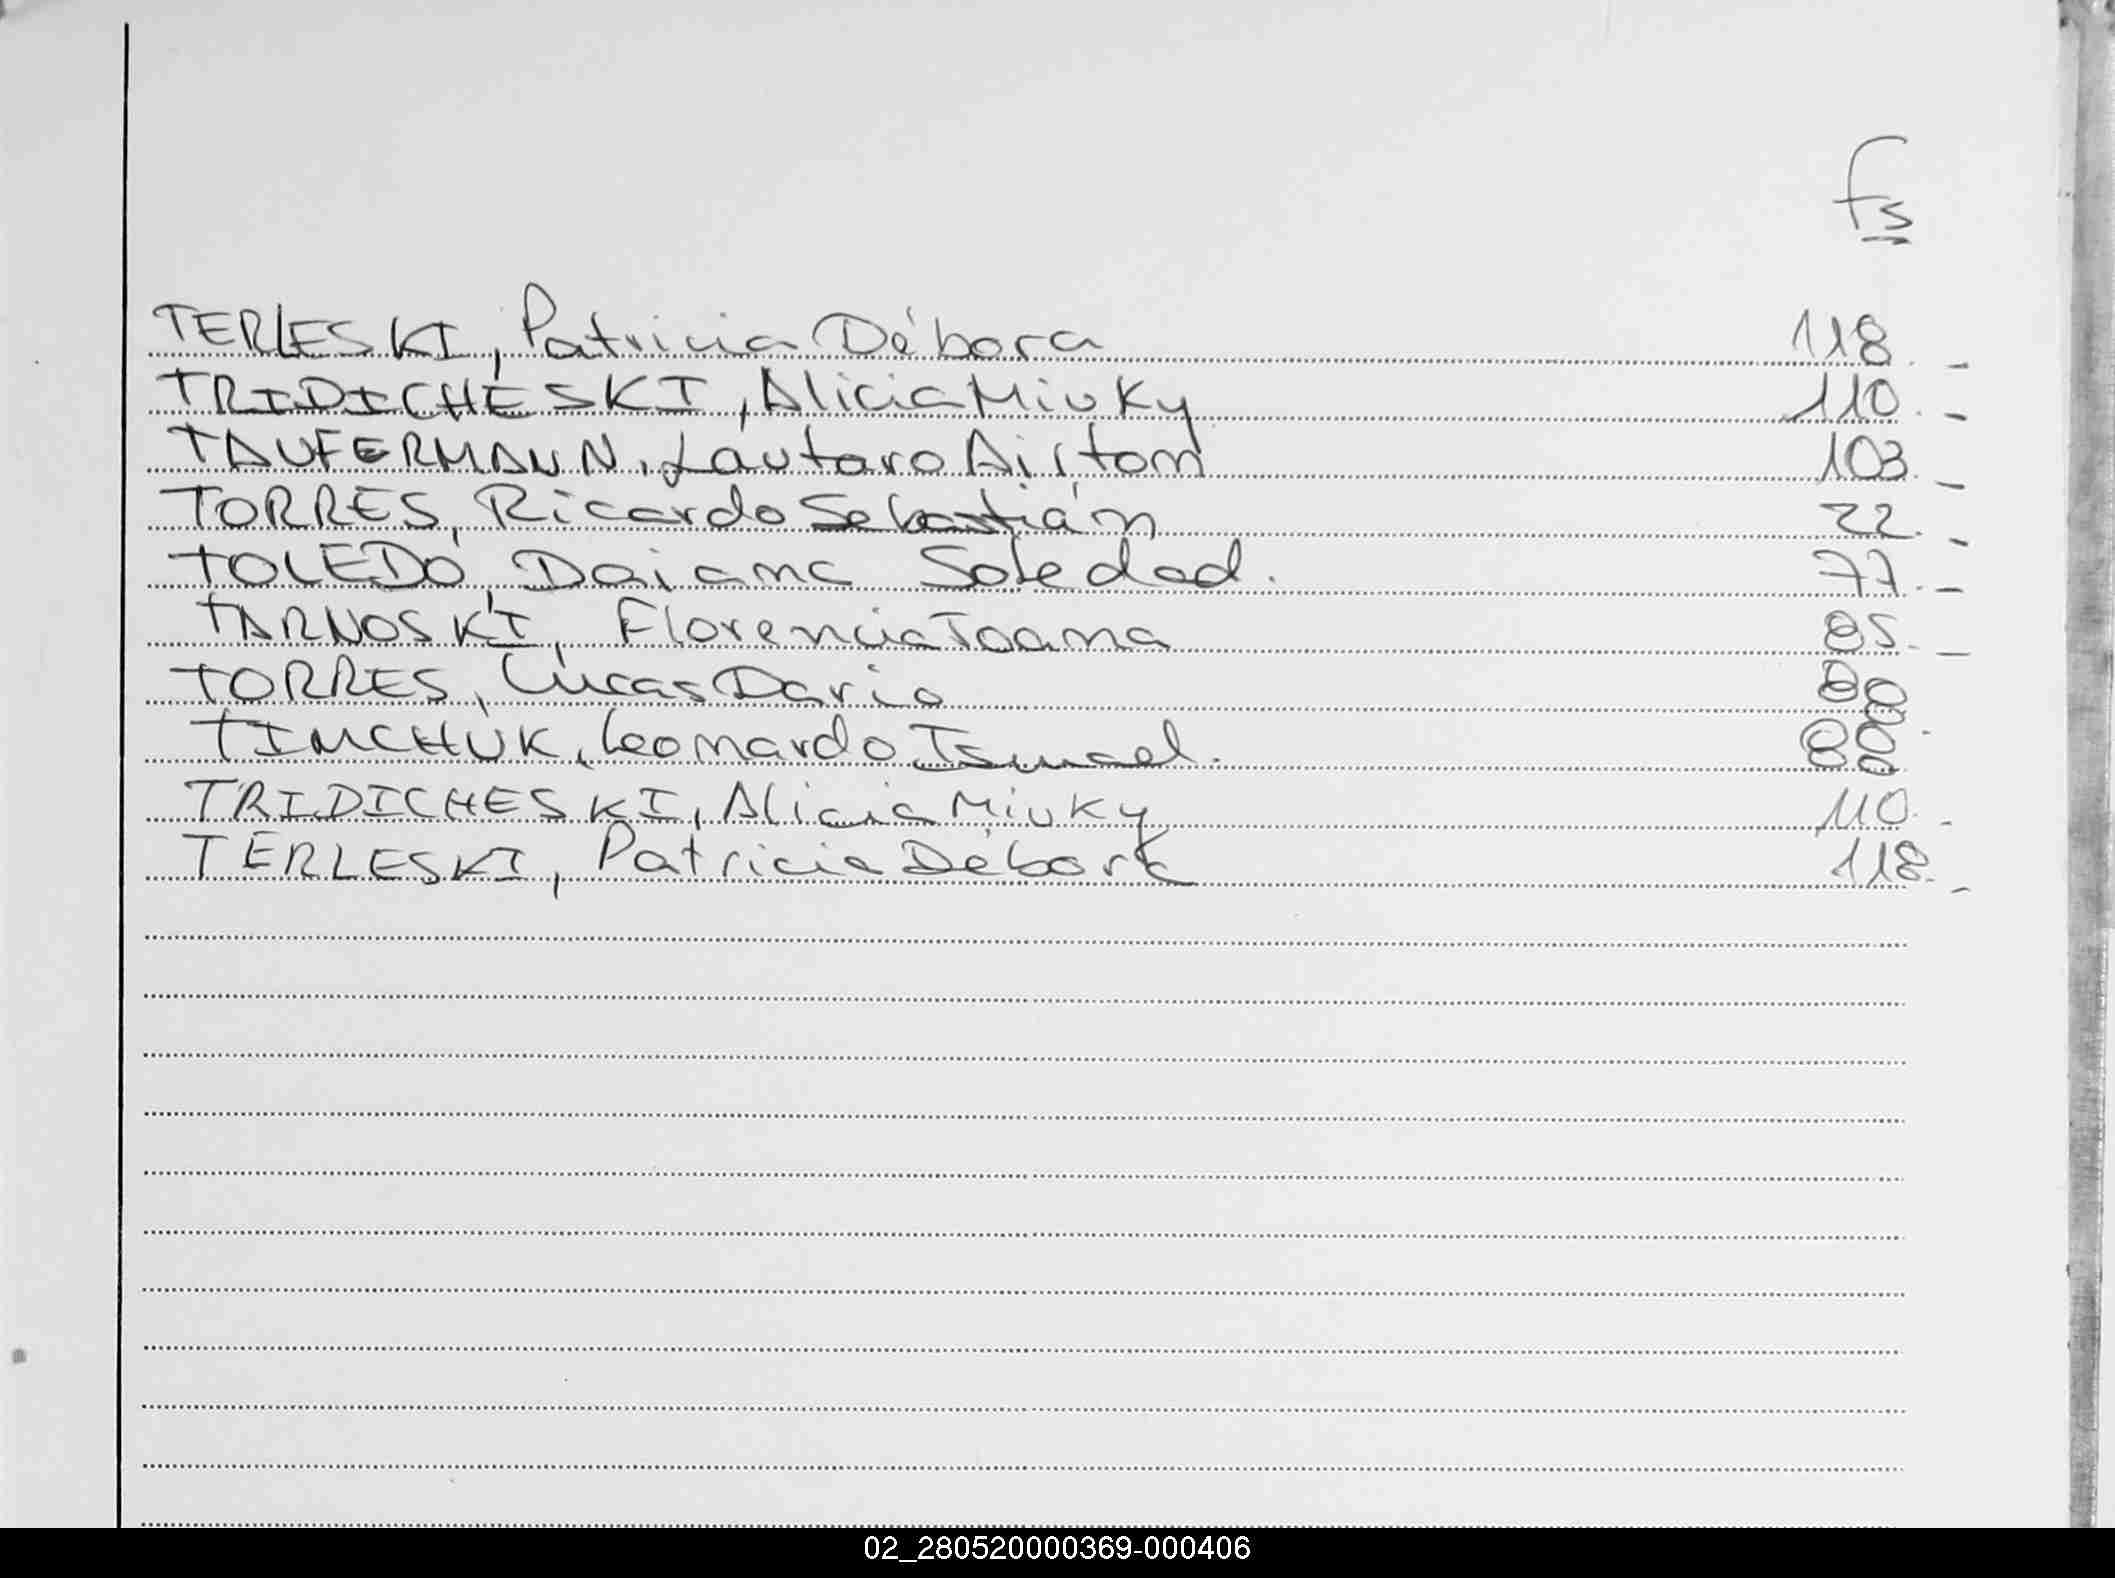 fs
TERLESKI, Patricia Débora 118. -
TRIDICHESKI, Alicia Miuky 110. -
TAUFERMANN, Lautaro Airtom 103. -
TORRES, Ricardo Sebastián 22. -
TOLEDO, Daiana Soledad. 77. -
TARNOSKI, Florencia Joana 85. -
TORRES, Lucas Dario
TIMCHUK, Leonardo Ismael. 88 -
TRIDICHESKI, Alicia Miuky 110. -
TERLESKI, Patricia Débora 118. -
02_280520000369-000406